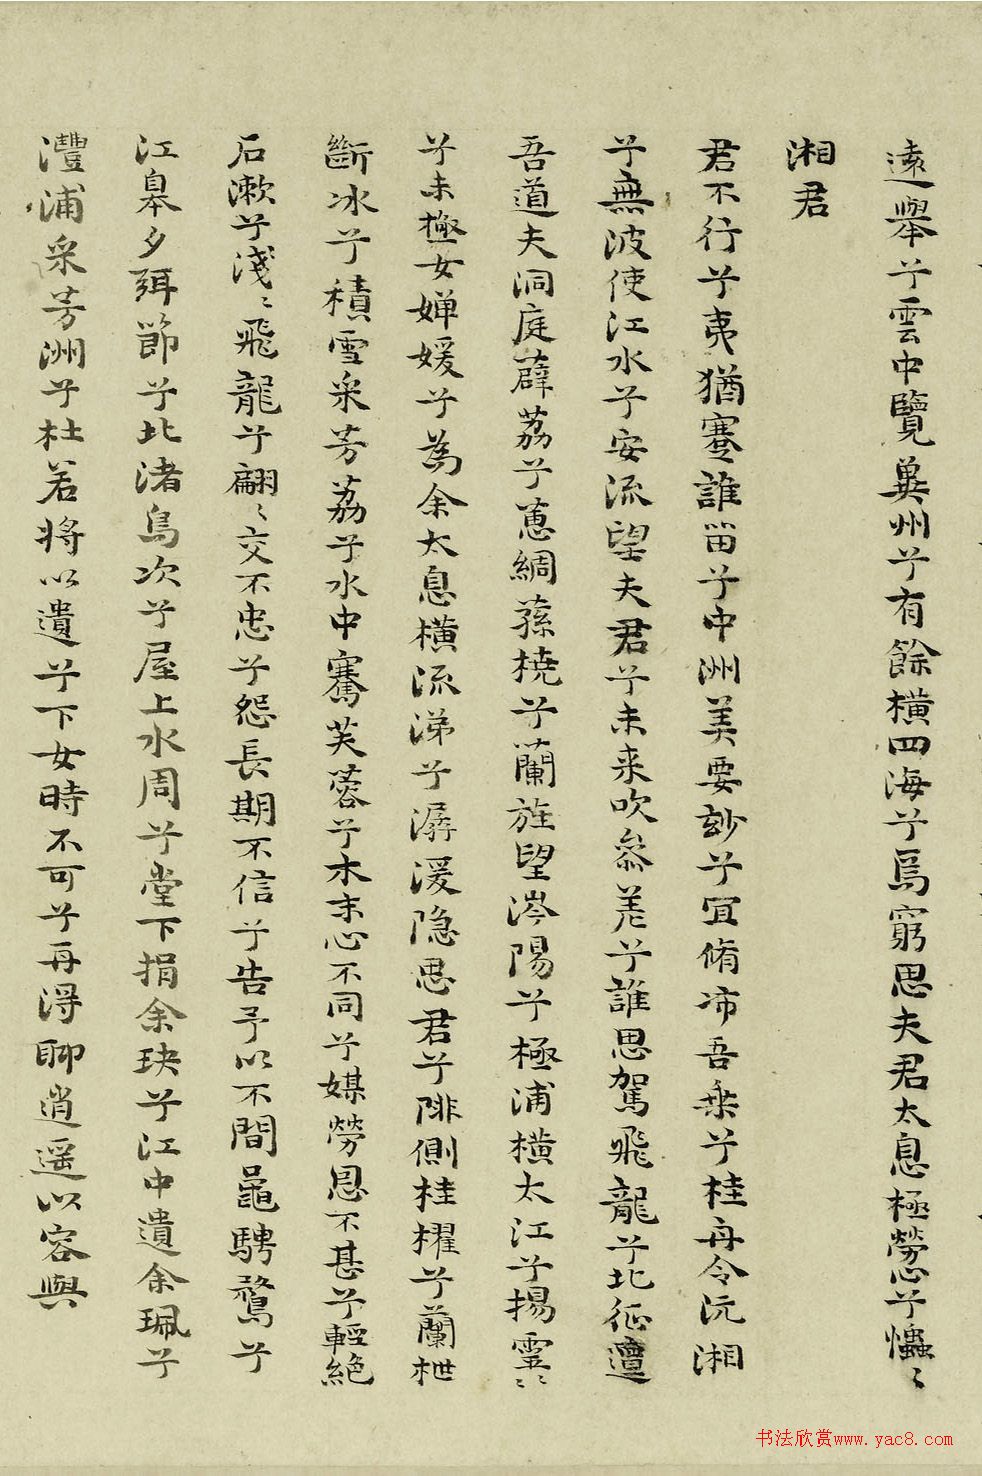 遠舉兮雲中覽冀州兮有餘橫四海兮焉窮思夫君太息極勞心兮㦧〻
湘君
君不行兮夷猶蹇誰留兮中洲美要玅兮宜脩沛吾乘兮桂舟令沅湘
兮無波使江水兮安流望夫君兮未来吹參差兮誰思駕飛龍兮北征邅
吾道夫洞庭薜荔兮蕙綢蓀橈兮蘭旌望涔陽兮極浦橫太江兮揚靈〻
兮未極女嬋媛兮為余太息橫流涕兮潺湲隐思君兮陫側桂櫂兮蘭枻
斷冰兮積雪采芳荔兮水中騫芙蓉兮木末心不同兮媒勞恩不甚兮輕絕
石漱兮淺〻飛龍兮翩〻交不忠兮怨長期不信兮告予以不間鼂騁騖兮
江皋夕弭節兮北渚鳥次兮屋上水周兮堂下捐余玦兮江中遺余珮兮
澧浦采芳洲兮杜若将以遺兮下女時不可兮再淂聊逍遥以容與
书法欣赏www.yac8.com